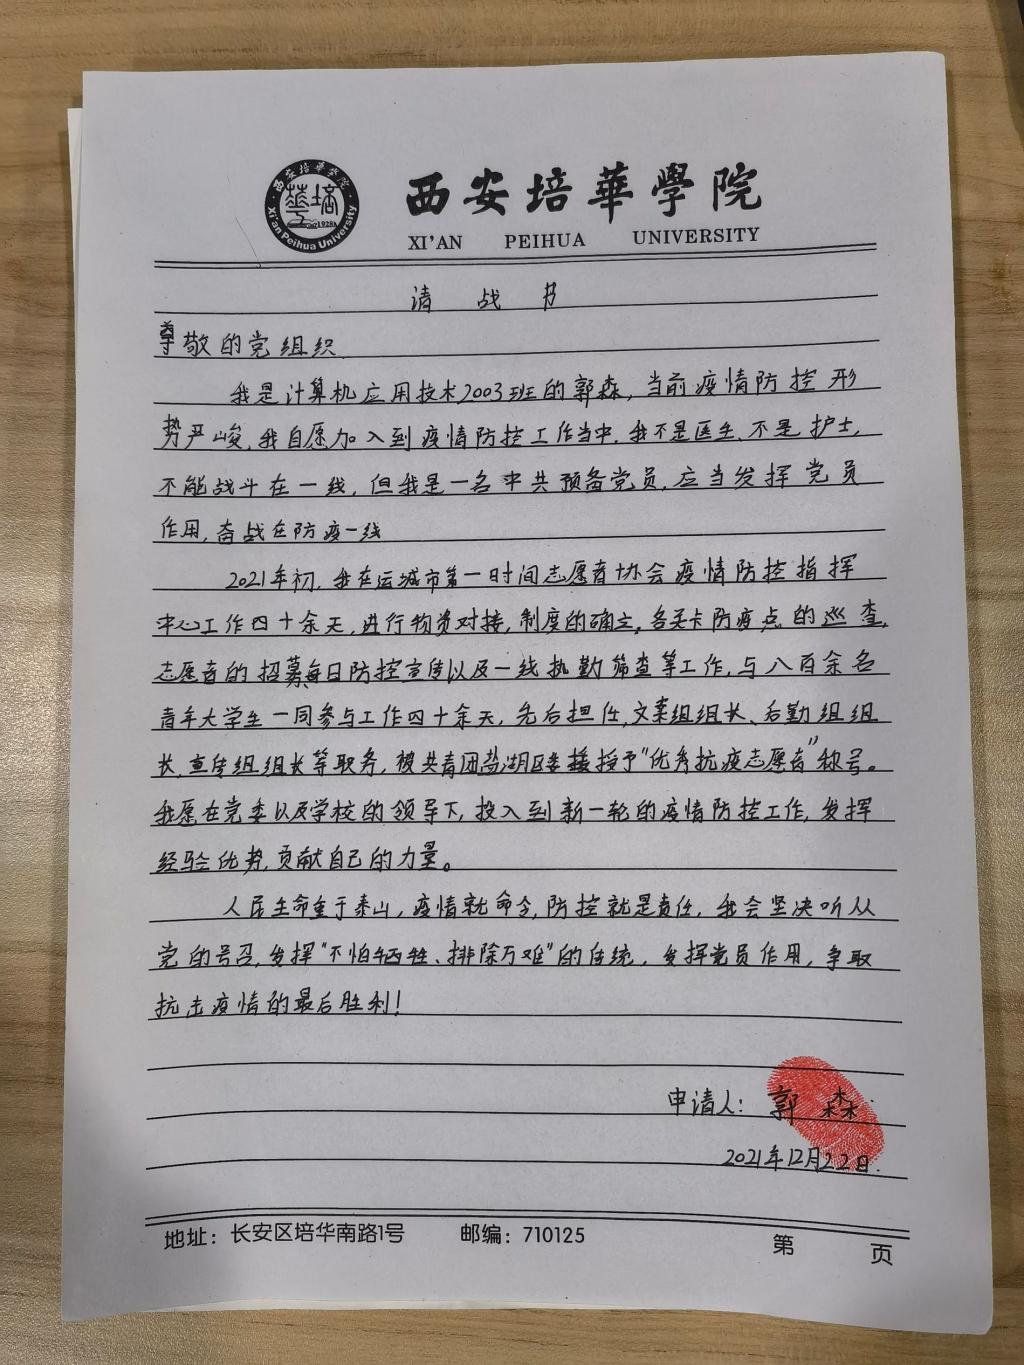 西安培華學院
XI'AN PEIHUA UNIVERSITY
西安培华学院
Xi'an Peihua University
1928
请战书
尊敬的党组织
我是计算机应用技术2003班的郭森,当前疫情防控形
势严峻,我自愿加入到疫情防控工作当中.我不是医生、不是护士,
不能战斗在一线,但我是一名中共预备党员,应当发挥党员
作用,奋战在防疫一线
2021年初,我在运城市第一时间志愿者协会疫情防控指挥
中心工作四十余天,进行物资对接,制度的确立,各关卡防疫点的巡查,
志愿者的招募每日防控宣传以及一线执勤筛查等工作,与八百余名
青年大学生一同参与工作四十余天,先后担任,文案组组长、后勤组组
长、宣传组组长等职务,被共青团盐湖区委授予"优秀抗疫志愿者"称号。
我愿在党委以及学校的领导下,投入到新一轮的疫情防控工作,发挥
经验优势,贡献自己的力量。
人民生命重于泰山,疫情就命令,防控就是责任,我会坚决听从
党的号召,发挥"不怕牺牲、排除万难"的传统,发挥党员作用,争取
抗击疫情的最后胜利!
申请人:郭森.
2021年12月22日.
地址:长安区培华南路1号 邮编:710125
第 页